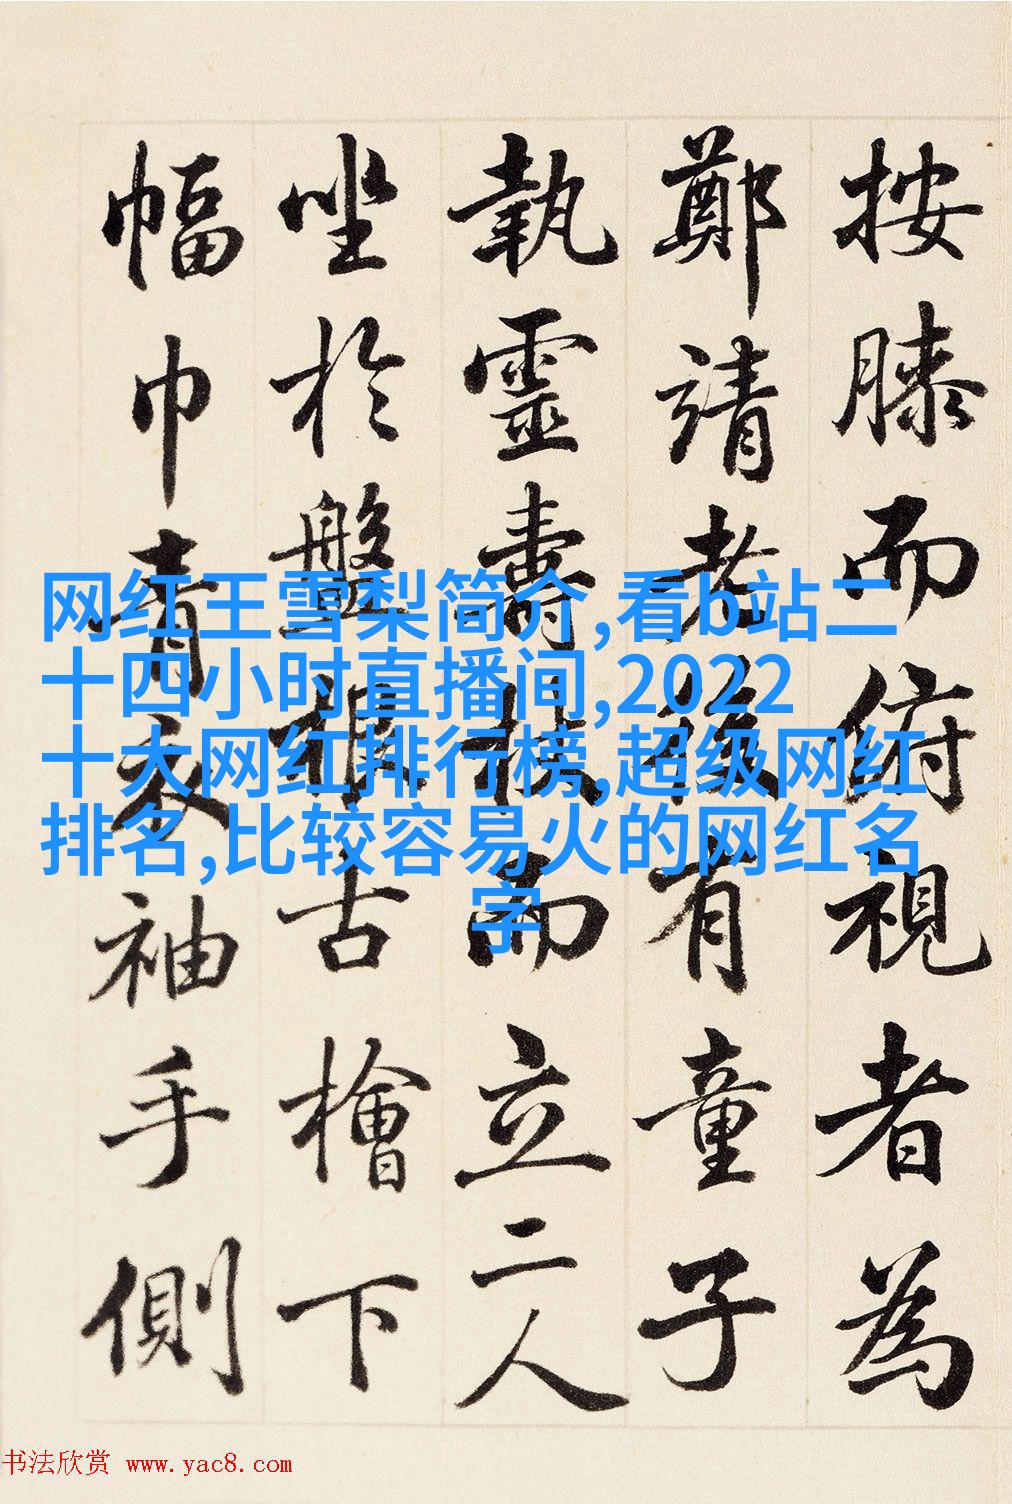 按膝而俯視者為
鄭靖老後有童子
執靈壽杖而立二人
坐於盤根古檜下
幅巾青衣袖手側
网红王雪梨简介,看b站二
十四小时直播间,2022
十大网红排行榜,超级网红
排名,比较容易火的网红名
字
书法欣赏 www.yac8.com